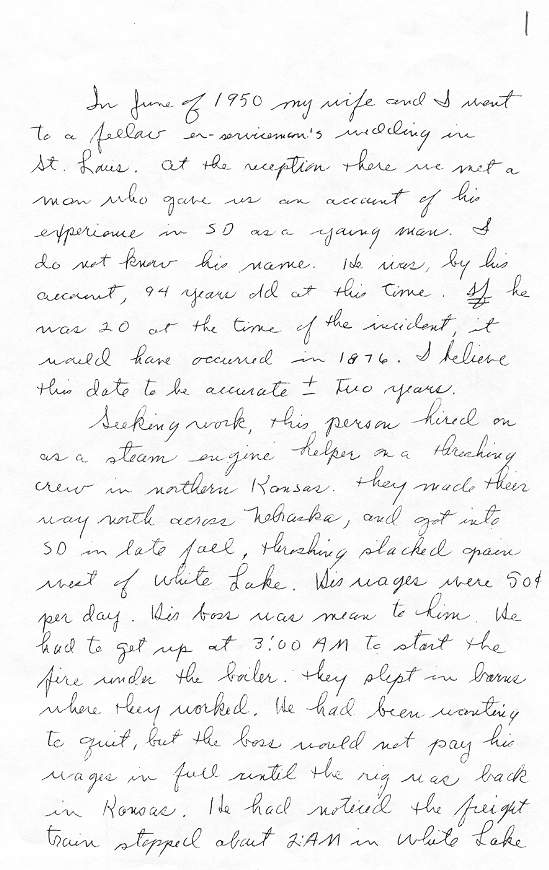 1
In June of 1950 my wife and I went
to a fellow ex-serviceman's wedding in
St. Louis. At the reception there we met a
man who gave us an account of his
experience in SD as a young man. I
do not know his name. He was, by his
account, 94 years old at this time. If he
was 20 at the time of the incident, it
would have occurred in 1876. I believe
this date to be accurate ± two years.
Seeking work, this person hired on
as a steam engine helper on a threshing
crew in northern Kansas. They made their
way north across Nebraska, and got into
SD in late fall, threshing stacked grain
west of White Lake. His wages were 50¢
per day. His boss was mean to him. He
had to get up at 3:00 AM to start the
fire under the boiler. They slept in barns
where they worked. He had been wanting
to quit, but the boss would not pay his
wages in full until the rig was back
in Kansas. He had noticed the freight
train stopped about 2:AM in White Lake